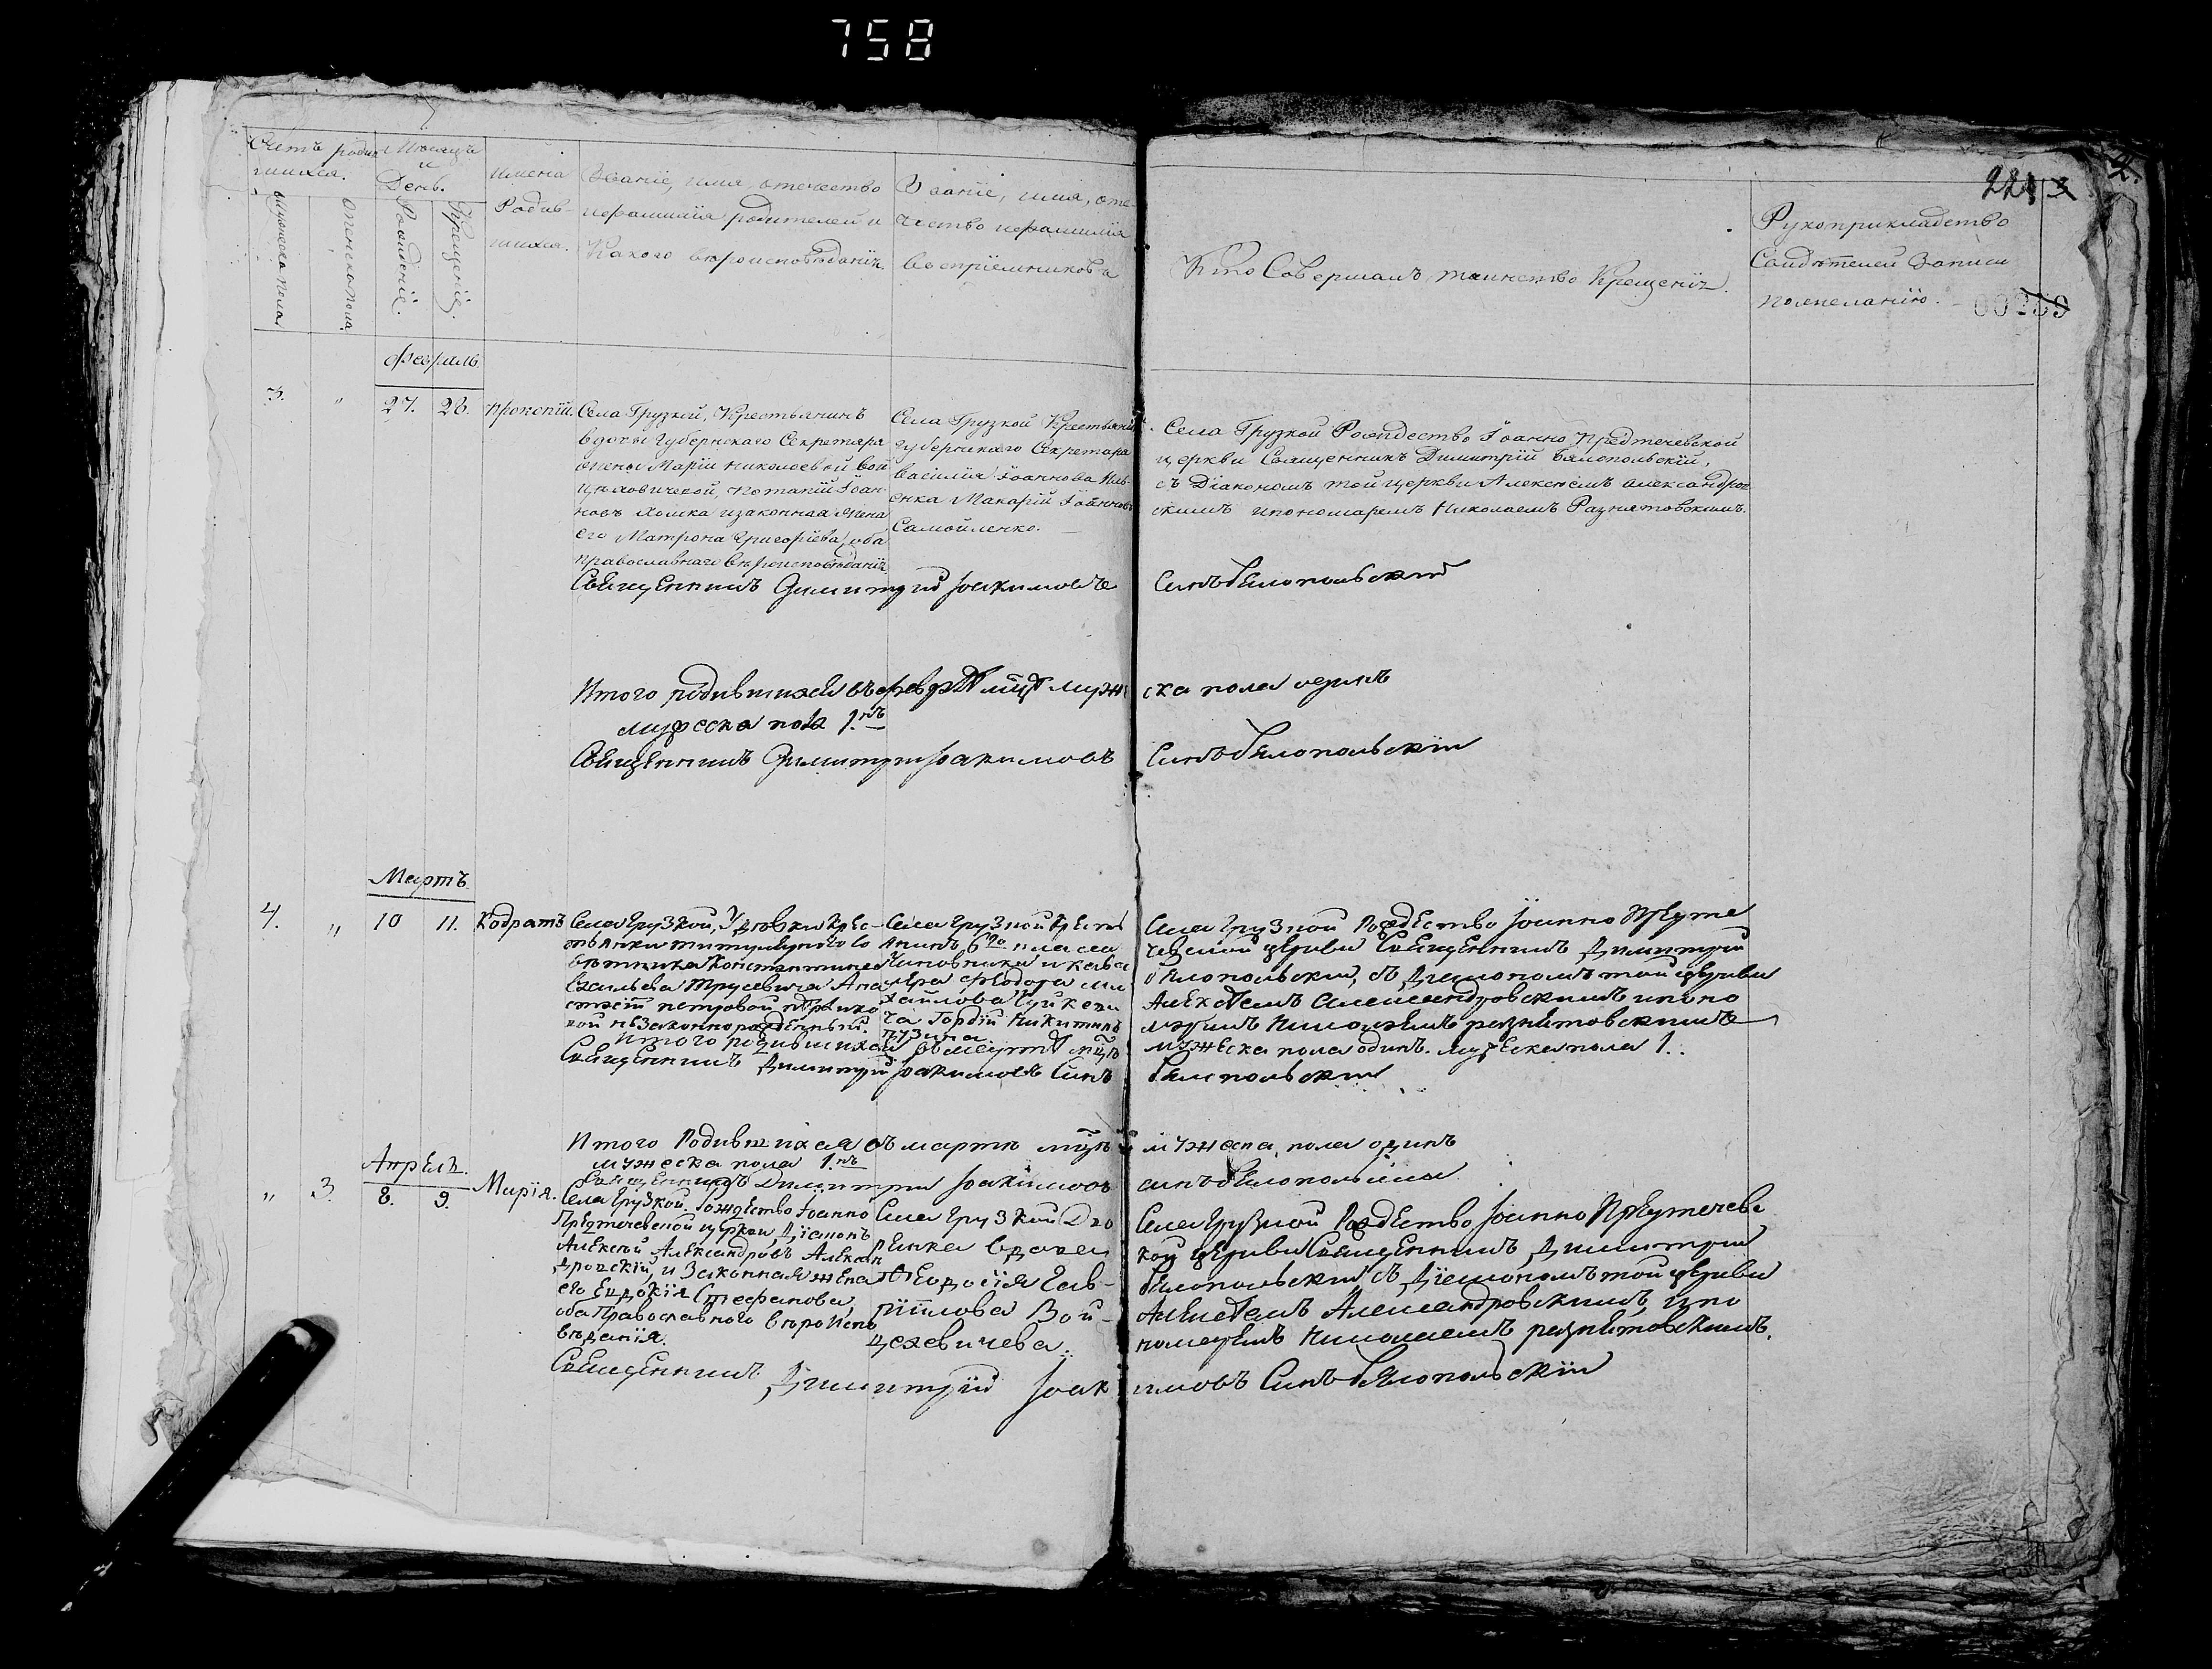 758
2.
221 3
Счетъ родив-
шихся.
Мѣсяцъ
и
День.
мужеска пола
женска пола
Рожденіе.
Крещеніе.
имена
Родив-
шихся.
Званіе, имя, отечество
ифамилія родителей и
Какого вѣроисповѣданія.
Званіе, имя, оте-
чество ифамилія
Воспріемниковъ
Кто Совершалъ таинство Крещенія.
Рукоприкладство
Свидѣтелей Записи
пожеланію.
00259
Февраль.
3. " 27. 28. Прокопій.
Села Грузкой, Крестьянинъ
вдовы Губернскаго Секретаря
жены Маріи Николаевой Вой
цеховичевой, Потапій Іоан-
новъ Хомка изаконная Жена
его Матрона Григоріева, оба
православнаго вѣроисповѣданія
Села Грузкой Крестьянинъ
Губернскаго Секретаря
Василія Іоаннова
Макарій Іоанновъ
Самойленко.
Села Грузкой Рождество Іоанно Предтечевской
церкви Священникъ Димитрій Бялопольскій,
съ Діакономъ той церкви Алексѣемъ Александров
скимъ ипономаремъ Николаемъ Разнятовскимъ.
Священникъ Димитрій Іоакимовъ Синъ Бялопольскій
Итого родившихся въ февр мужеска пола единъ
мужеска пола 1.нъ
Священникъ Димитрій Іоакимовъ Синъ Бялопольскій
Мартъ.
4. " 10 11. Кодратъ
Села Грузкой, Удовки Крес-
тьянки титулярного Со
вѣтника Константина
Васильева Трусевича Ана
стасіи Петровой
незаконнорожденный.
Села Грузкой Крестья
нинъ 6го класса
Чиновника икава
лера Феодора Ми
хайлова
Гордій Никитинъ
Села Грузкой Рождество Іоанно Предте
чевской церкви Священникъ Димитрій
Бялопольскій, съ Діакономъ той церкви
Алексѣемъ Александровскимъ ипоно
маремъ Николаемъ Разнятовскимъ
Итого родившихся въ мартѣ мцѣ мужеска пола одинъ. мужеска пола 1.
Священникъ Димитрій Іоакимовъ Синъ Бялопольскій
Итого Родившихся въ мартѣ мцѣ мужеска пола одинъ
мужеска пола 1.нъ
Священникъ Димитрій Іоакимовъ синъ Бялопольскій
Апрѣль.
" 3. 8. 9. Марія.
Села Грузкой Рождество Іоанно
Предтечевской церкви, Діаконъ
Алексѣй Александровъ Алексан
дровскій, и Законная жена
его Евдокія Стефанова,
оба Православного вѣроиспо
вѣданія.
Села Грузкой Дво
рянка вдова
Феодосія Гав-
риилова Вой-
цеховичева.
Села Грузкой Рождество Іоанно Предтечевс
кой церкви Священникъ Димитрій
Бялопольскій, съ Діакономъ той церкви
Алексѣемъ Александровскимъ, ипо
номаремъ Николаемъ Разнятовскимъ.
Священникъ Димитрій Іоакимовъ Синъ Бялопольскій